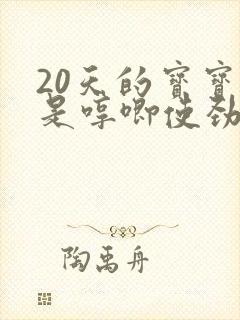 20天的宝宝
是哼唧使劲
陶禹舟